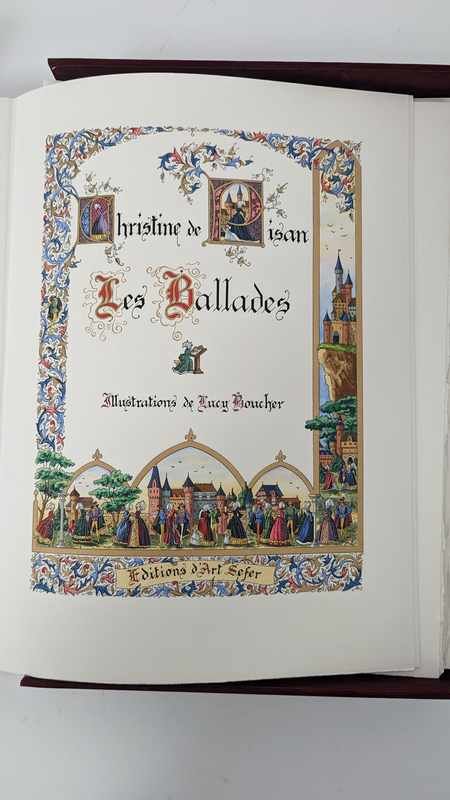 Christine de Pisan
Les Ballades
Illustrations de Lucy Boucher
Editions d'Art Sefer